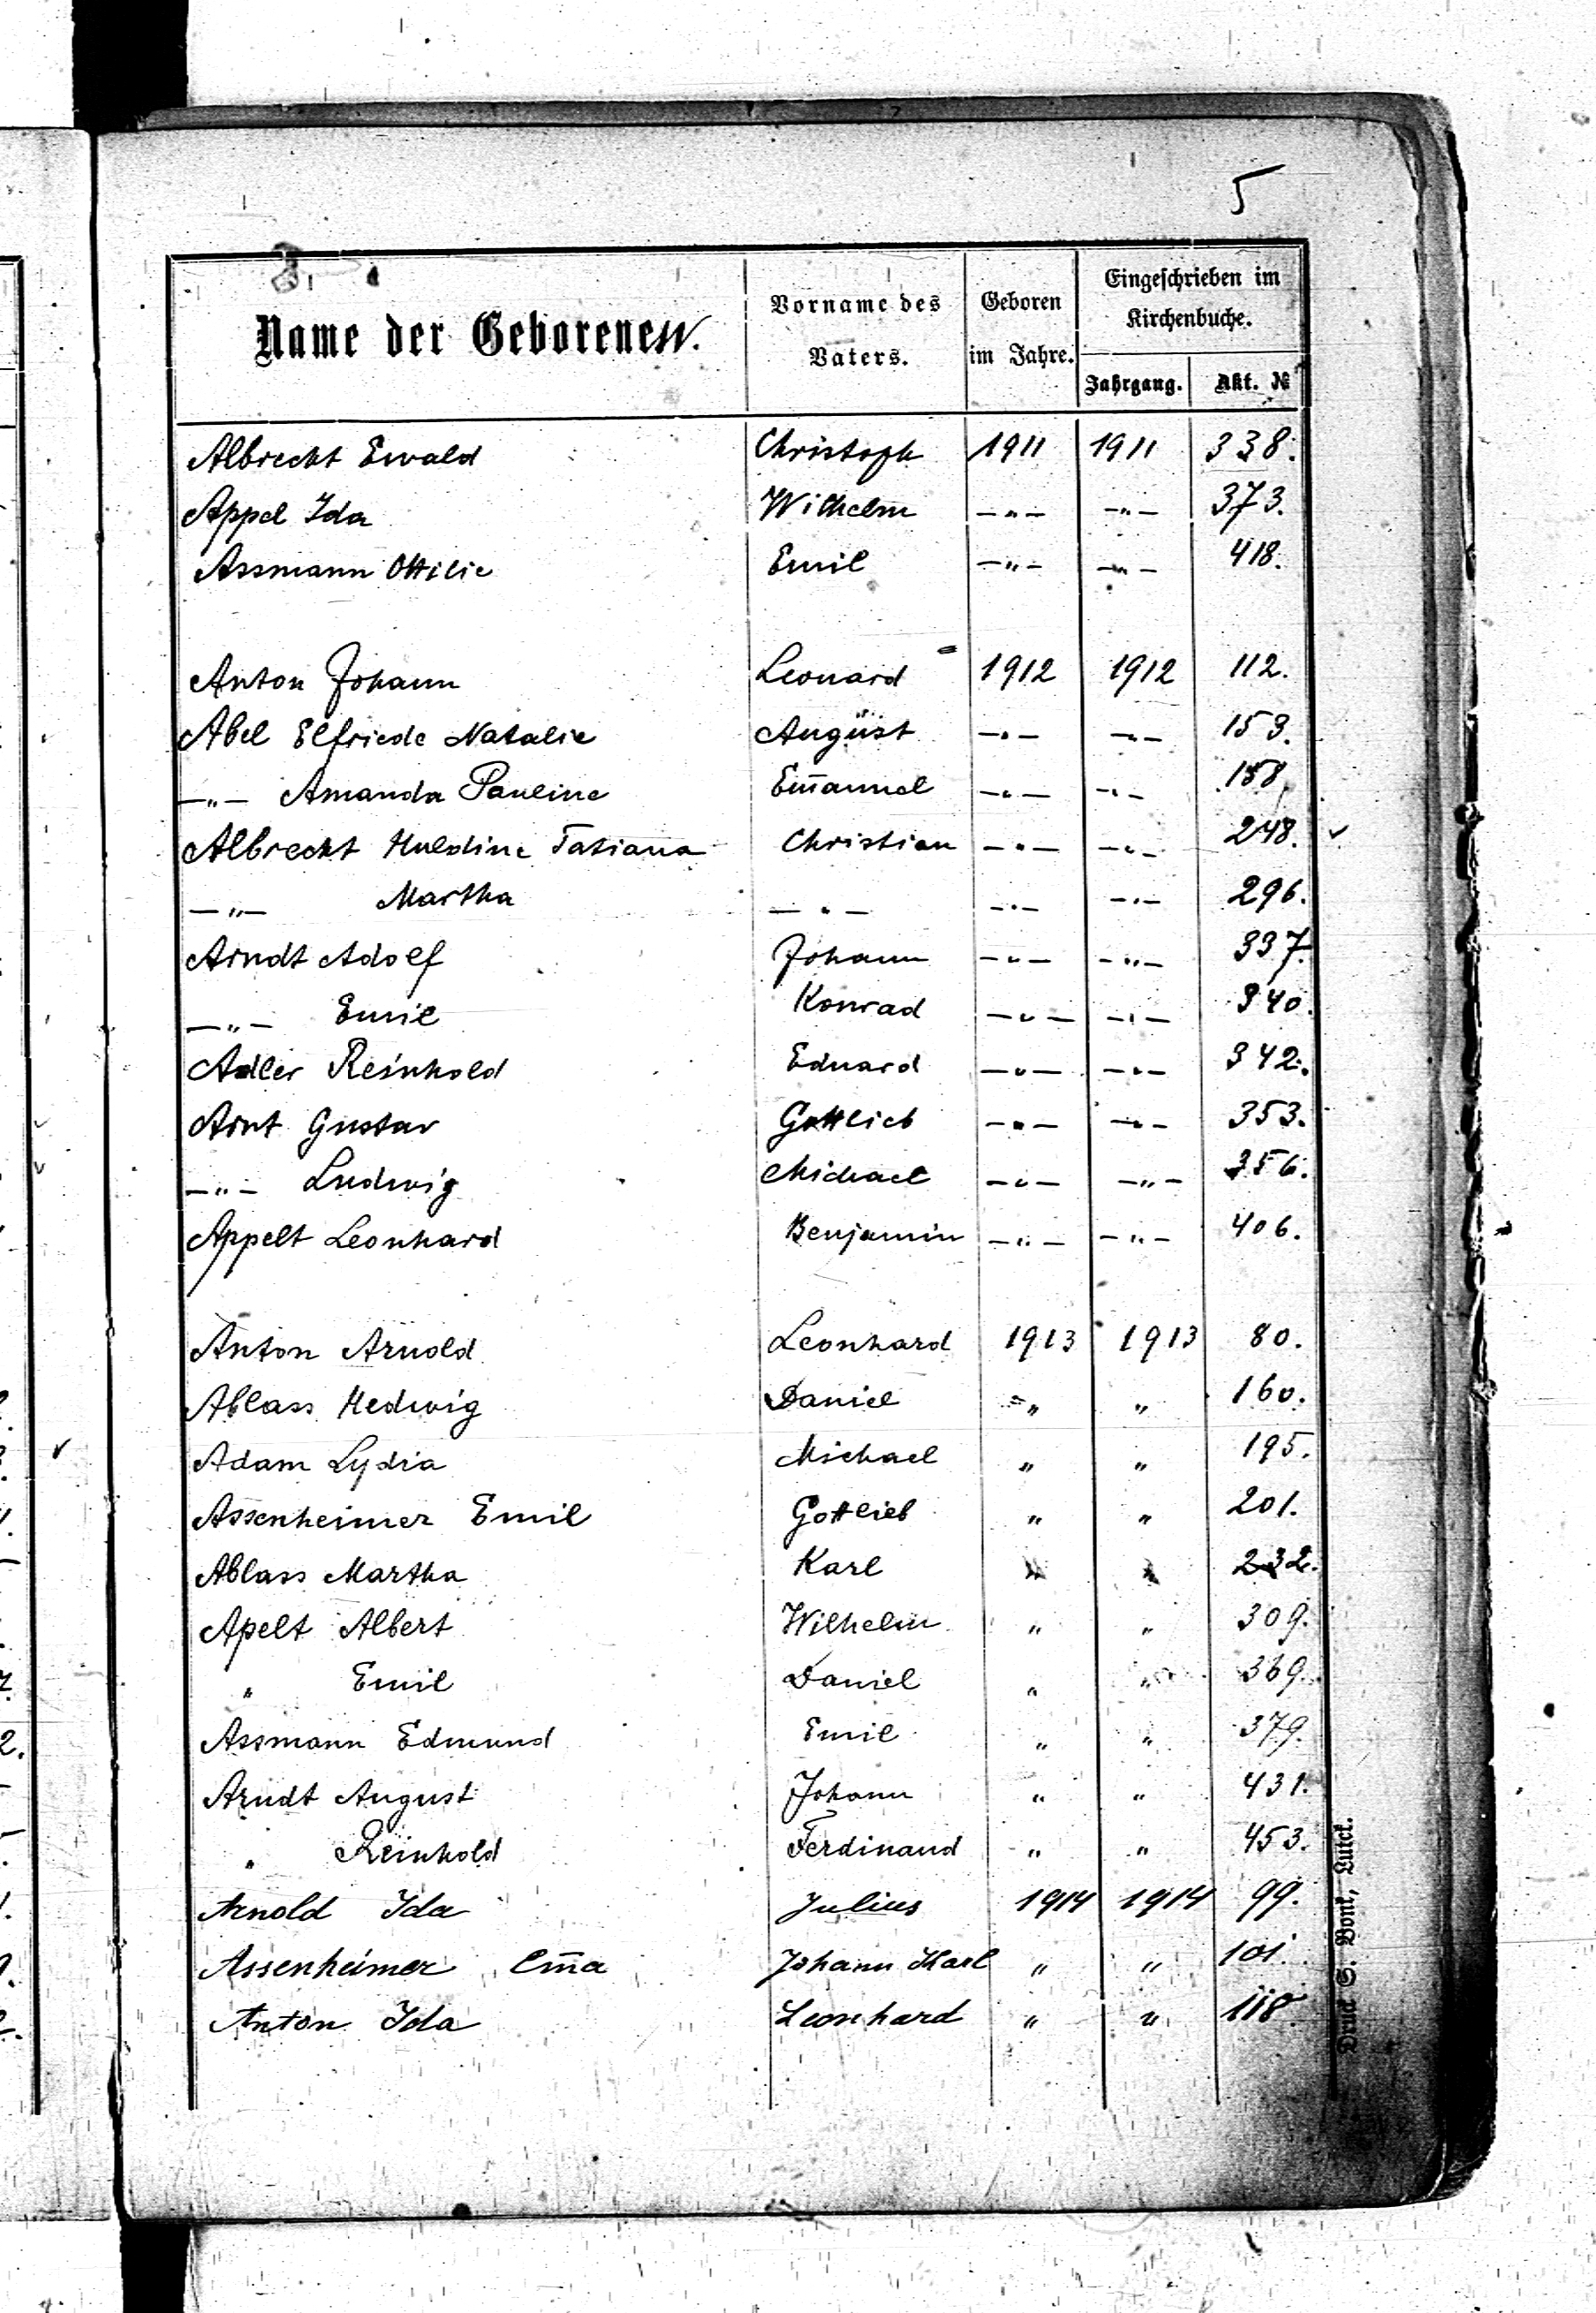 5
Name der Geborenen.
Vorname des Vaters.
Geboren im Jahre.
Eingeschrieben im Kirchenbuche.
Jahrgang. Akt. №
Albrecht Ewald Christoph 1911 1911 338.
Appel Ida Wilhelm —"— —"— 373.
Assmann Ottilie Emil —"— —"— 418.
Anton Johann Leonard 1912 1912 112.
Abel Elfriede Natalie August —"— —"— 153.
—"— Amanda Pauline Em̄anuel —"— —"— 158.
Albrecht Huldine Tatiana Christian —"— —"— 248. ✓
—"— Martha —"— —"— —"— 296.
Arndt Adolf Johann —"— —"— 337.
—"— Emil Konrad —"— —"— 340.
Adler Reinhold Eduard —"— —"— 342.
Arnt Gustav Gottlieb —"— —"— 353.
—"— Ludwig Michael —"— —"— 356.
Appelt Leonhard Benjamin —"— —"— 406.
Anton Arnold Leonhard 1913 1913 80.
Ablass Hedwig Daniel " " 160.
Adam Lydia Michael " " 195.
Assenheimer Emil Gottlieb " " 201.
Ablass Martha Karl " " 232.
Apelt Albert Wilhelm " " 309.
" Emil Daniel " " 369.
Assmann Edmund Emil " " 379.
Arndt August Johann " " 431.
" Reinhold Ferdinand " " 453.
Arnold Ida Julius 1914 1914 99.
Assenheimer Em̄a Johann Karl " " 101.
Anton Ida Leonhard " " 118.
Druck S. Bonk, Lutck.